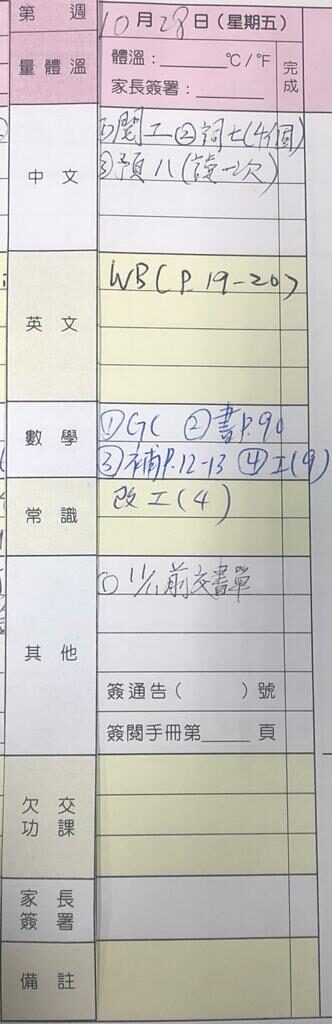 第 週 10月28日(星期五)
量體溫 體溫：______℃/℉ 完成
家長簽署：______
中文 ①閱工 ②詞七(4個)
③預八(讀一次)
英文 WB(P.19-20)
數學 ①GC ②書P.90
③補P.12-13 ④工(9)
常識 改工(4)
其他 ① 11/1前交書單
簽通告( )號
簽閱手冊第____頁
欠交功課
家長簽署
備註